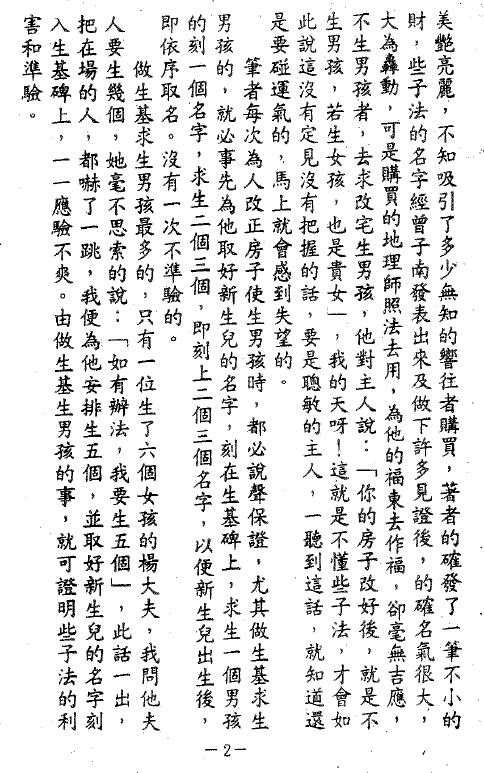 美艷亮麗，不知吸引了多少無知的響往者購買，著者的確發了一筆不小的
財，些子法的名字經曾子南發表出來及做下許多見證後，的確名氣很大，
大為轟動，可是購買的地理師照法去用，為他的福東去作福，卻毫無吉應，
不生男孩者，去求改宅生男孩，他對主人說：「你的房子改好後，就是不
生男孩，若生女孩，也是貴女」，我的天呀！這就是不懂些子法，才會如
此說這沒有定見沒有把握的話，要是聰敏的主人，一聽到這話，就知道還
是要碰運氣的，馬上就會感到失望的。
筆者每次為人改正房子使生男孩時，都必說聲保證，尤其做生基求生
男孩的，就必事先為他取好新生兒的名字，刻在生基碑上，求生一個男孩
的刻一個名字，求生二個三個，即刻上二個三個名字，以便新生兒出生後，
即依序取名。沒有一次不準驗的。
做生基求生男孩最多的，只有一位生了六個女孩的楊大夫，我問他夫
人要生幾個，她毫不思索的說：「如有辦法，我要生五個」，此話一出，
把在場的人，都嚇了一跳，我便為他安排生五個，並取好新生兒的名字刻
入生基碑上，一一應驗不爽。由做生基生男孩的事，就可證明些子法的利
害和準驗。
－2－